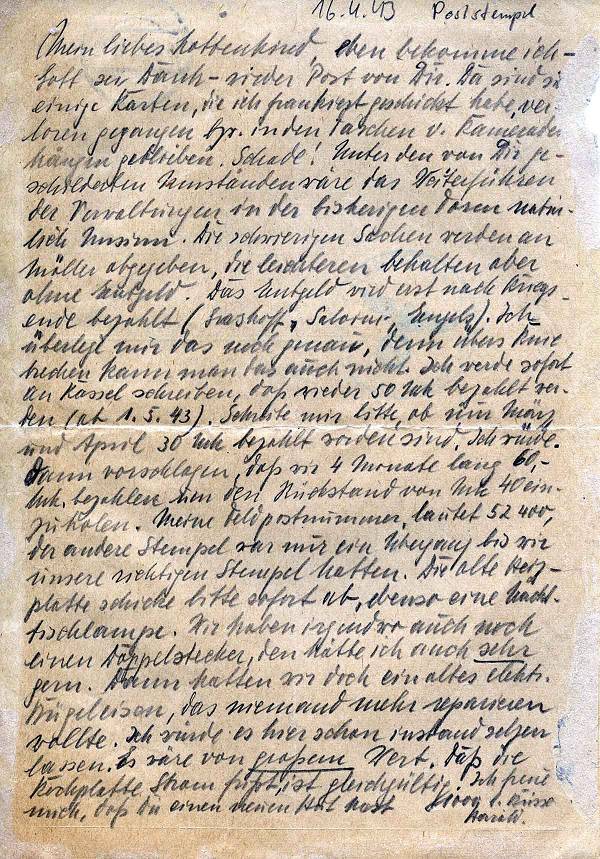 16.4.43 Poststempel
Mein liebes Mottenkind, eben bekomme ich –
Gott sei Dank – wieder Post von Dir. Da sind ja
einige Karten, die ich frankiert geschickt habe, ver-
loren gegangen bzw. in den Taschen v. Kameraden
hängen geblieben. Schade! Unter den von Dir ge-
schilderten Umständen wäre das Weiterführen
der Verwaltungen in der bisherigen Form natür-
lich Unsinn. Die schwierigen Sachen werden an
Möller abgegeben, die leichteren behalten aber
ohne Entgeld. Das Entgeld wird erst nach Kriegs-
ende bezahlt ( Engels). Ich
überlege mir das noch genau, denn übers Knie
brechen kann man das auch nicht. Ich werde sofort
an Kassel schreiben, daß wieder 50 Mk bezahlt wer-
den (ab 1.5.43). Schreibe mir bitte, ob nun März
und April 30 Mk bezahlt worden sind. Ich würde
dann vorschlagen, daß wir 4 Monate lang 60,-
Mk. bezahlen um den Rückstand von Mk 40 ein-
zuholen. Meine Feldpostnummer lautet 52400,
der andere Stempel war nur ein Übergang bis wir
unsere richtigen Stempel hatten. Die alte Heiz-
platte schicke bitte sofort ab, ebenso eine Nacht-
tischlampe. Wir haben irgendwo auch noch
einen Doppelstecker, den hätte ich auch sehr
gern. Dann hatten wir doch ein altes elektr.
Bügeleisen, das niemand mehr reparieren
wollte. Ich würde es hier schon instand setzen
lassen. Es wäre von großem Wert. Daß die
Kochplatte Strom frißt, ist gleichgültig. Ich freue
mich, daß Du einen neuen Hut hast
Harald.